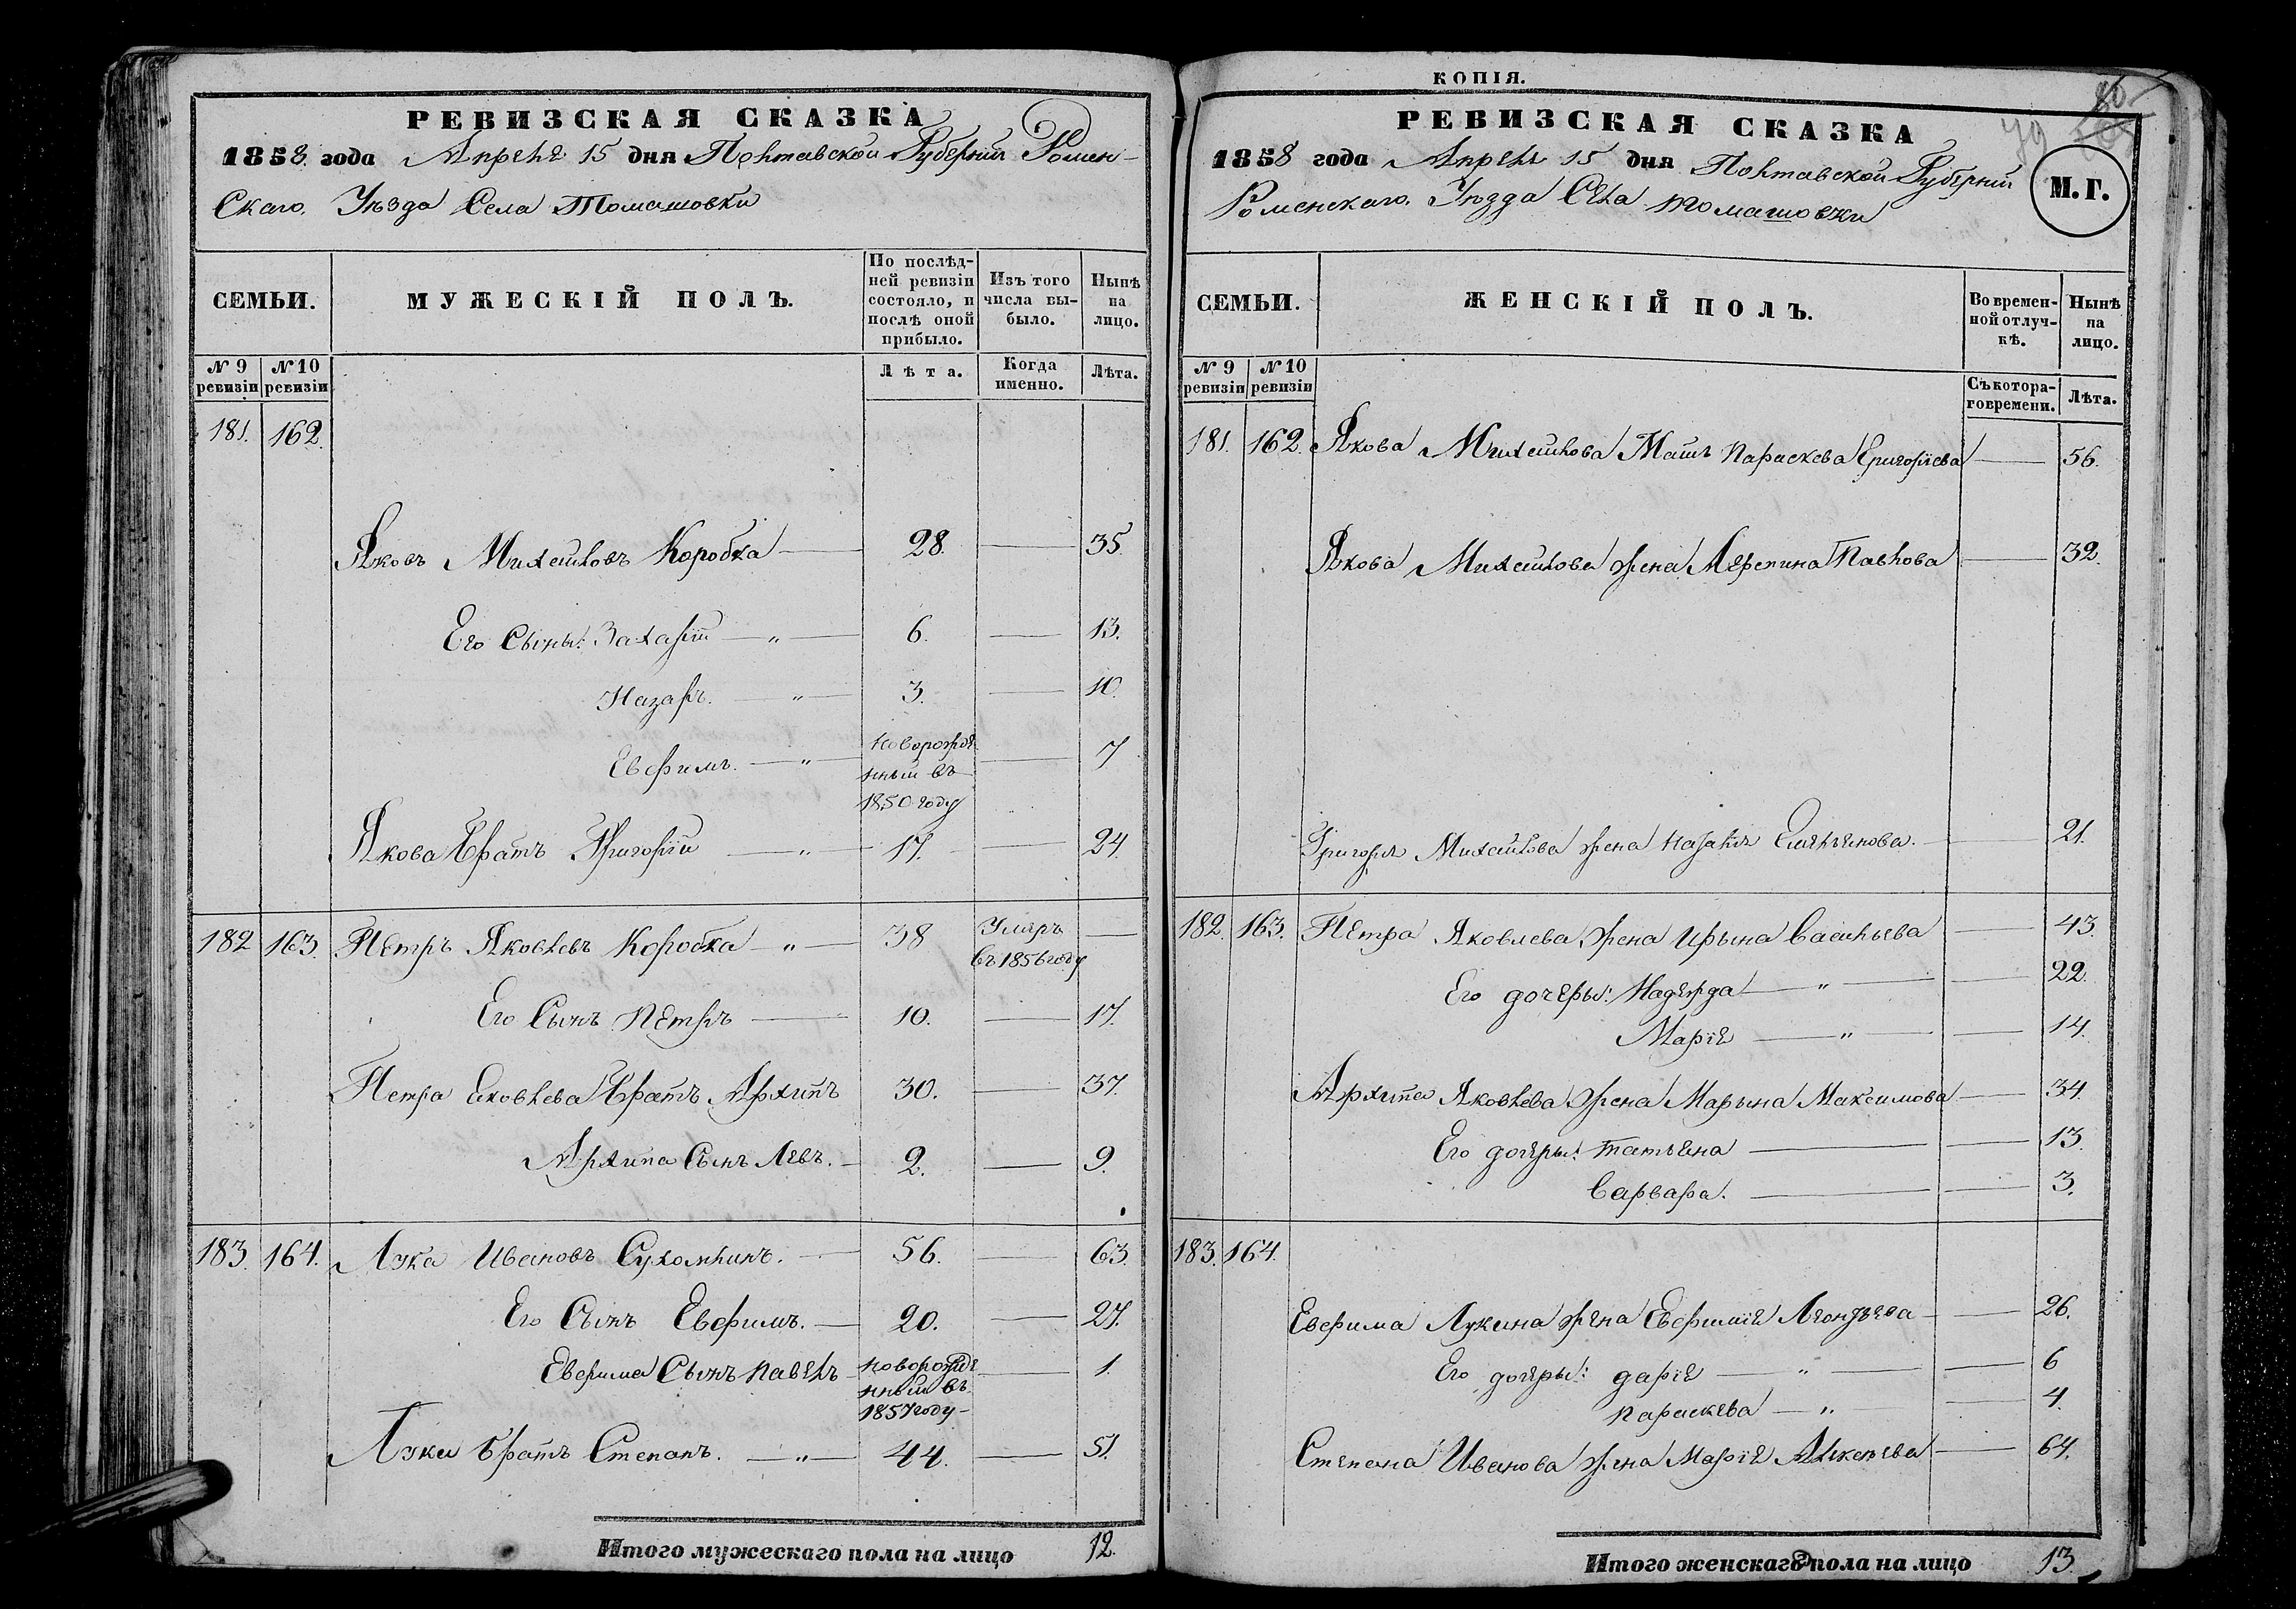 РЕВИЗСКАЯ СКАЗКА
1858 года Апреля 15 дня Полтавской Губернии Ромен-
скаго Уѣзда Села Томашовки
СЕМЬИ.
МУЖЕСКІЙ ПОЛЪ.
По послѣд-
ней ревизіи
состояло, и
послѣ оной
прибыло.
Изъ того
числа вы-
было.
Нынѣ
на
лицо.
№ 9
ревизіи
№ 10
ревизіи
Лѣта.
Когда
именно.
Лѣта.
181. 162.
Яковъ Михайловъ Коробка — 28. — 35.
Его Сыны: Захарій — " — 6. — 13.
Назаръ. — " — 3. — 10.
Евфимъ. — " — новорожде
нный въ
1850 году — 7
Якова братъ Григорій — " — 17. — 24.
182 163. Петръ Яковлевъ Коробка — " — 38 Умеръ
въ 1856 году —
Его Сынъ Петръ — 10. — 17.
Петра Яковлева братъ Архипъ 30. — 37.
Архипа Сынъ Левъ. — 2. — 9.
183. 164. Лука Ивановъ Сухомлинъ. — 56. — 63.
Его Сынъ Евфимъ. — 20. — 27.
Евфима Сынъ Павелъ новорожде
нный въ
1857 году — 1.
Луки братъ Степанъ. — " — 44. — 51.
Итого мужескаго пола на лицо 12.
КОПІЯ.
79
РЕВИЗСКАЯ СКАЗКА
1858 года Апреля 15 дня Полтавской Губерніи
Роменскаго Уѣзда Села Томашовки
М.Г.
СЕМЬИ.
ЖЕНСКІЙ ПОЛЪ.
Во времен-
ной отлуч-
кѣ.
Нынѣ
на
лицо.
№ 9
ревизіи
№ 10
ревизіи
Съ котора-
го времени.
Лѣта.
181. 162. Якова Михайлова Мать Параскева Григорьева — 56.
Якова Михайлова жена Павлова — 32.
Григорія Михайлова жена Емельянова. — 21.
182. 163. Петра Яковлева жена Ирына Васильева — 43.
Его дочеры: Надежда — " — 22.
Марія — " — 14.
Архипа Яковлева жена Марына Максимова — 34.
Его дочеры: Татьяна — 13.
Варвара. — 3.
183. 164.
Евфима Лукина жена Евфимія Леонтьева — 26.
Его дочеры: Дарія — " — 6
Параскева — " — 4.
Степана Иванова жена Марія Алексѣева — 64.
Итого женскаго пола на лицо 13.